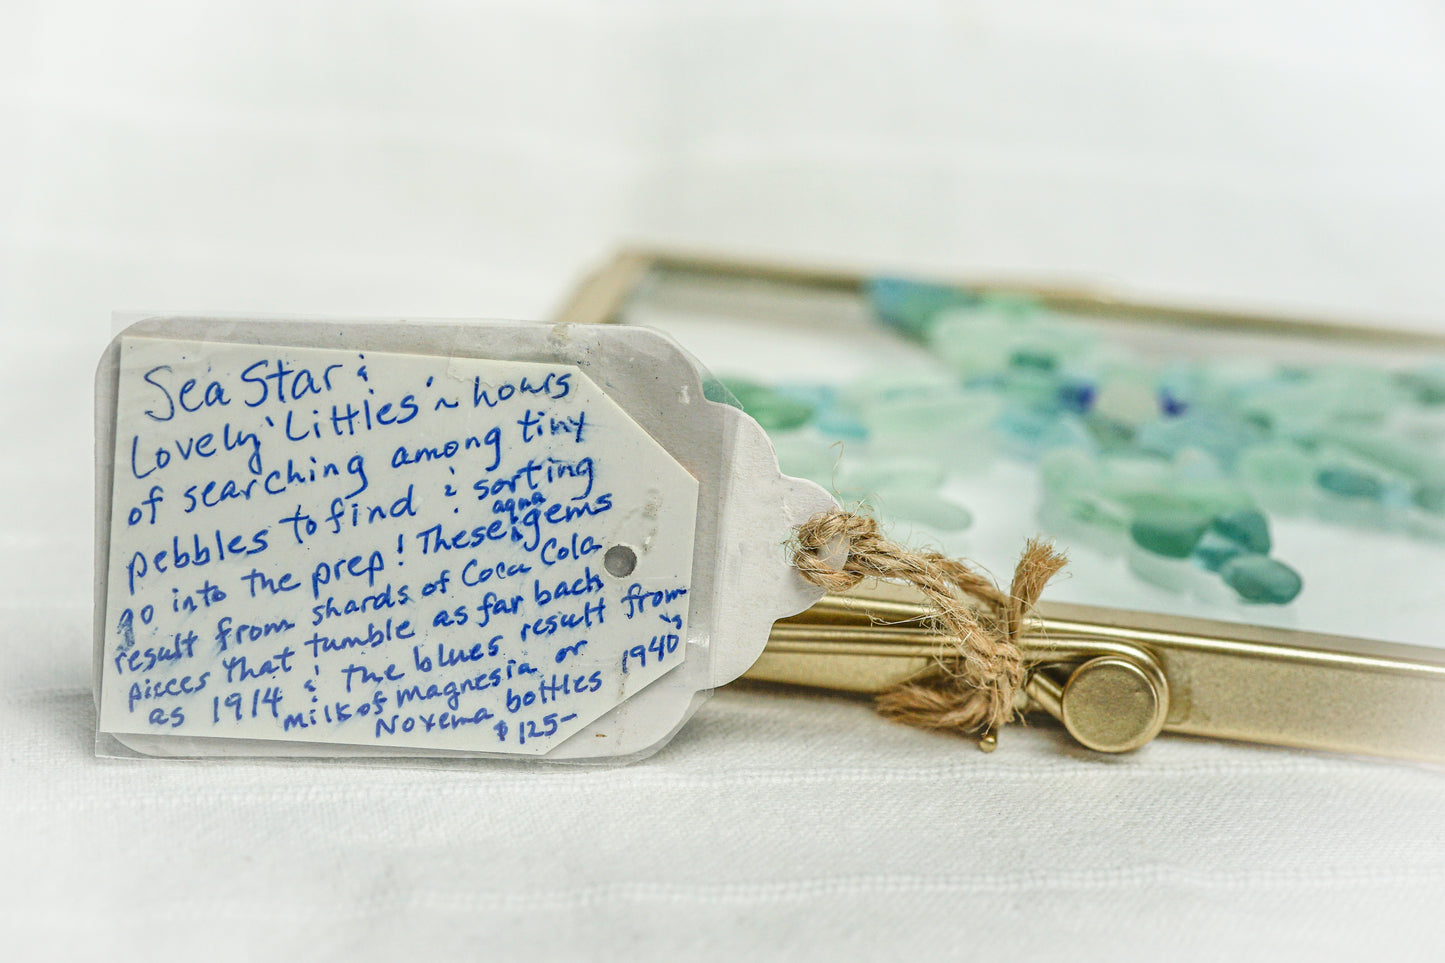 Sea Star &
Lovely 'Littles' ~ hours
of searching among tiny
pebbles to find & sorting
go into the prep! These aqua gems
result from shards of Coca Cola
pieces that tumble as far back
as 1914 & the blues result from
milk of magnesia or 1940's
Noxema bottles
$125-